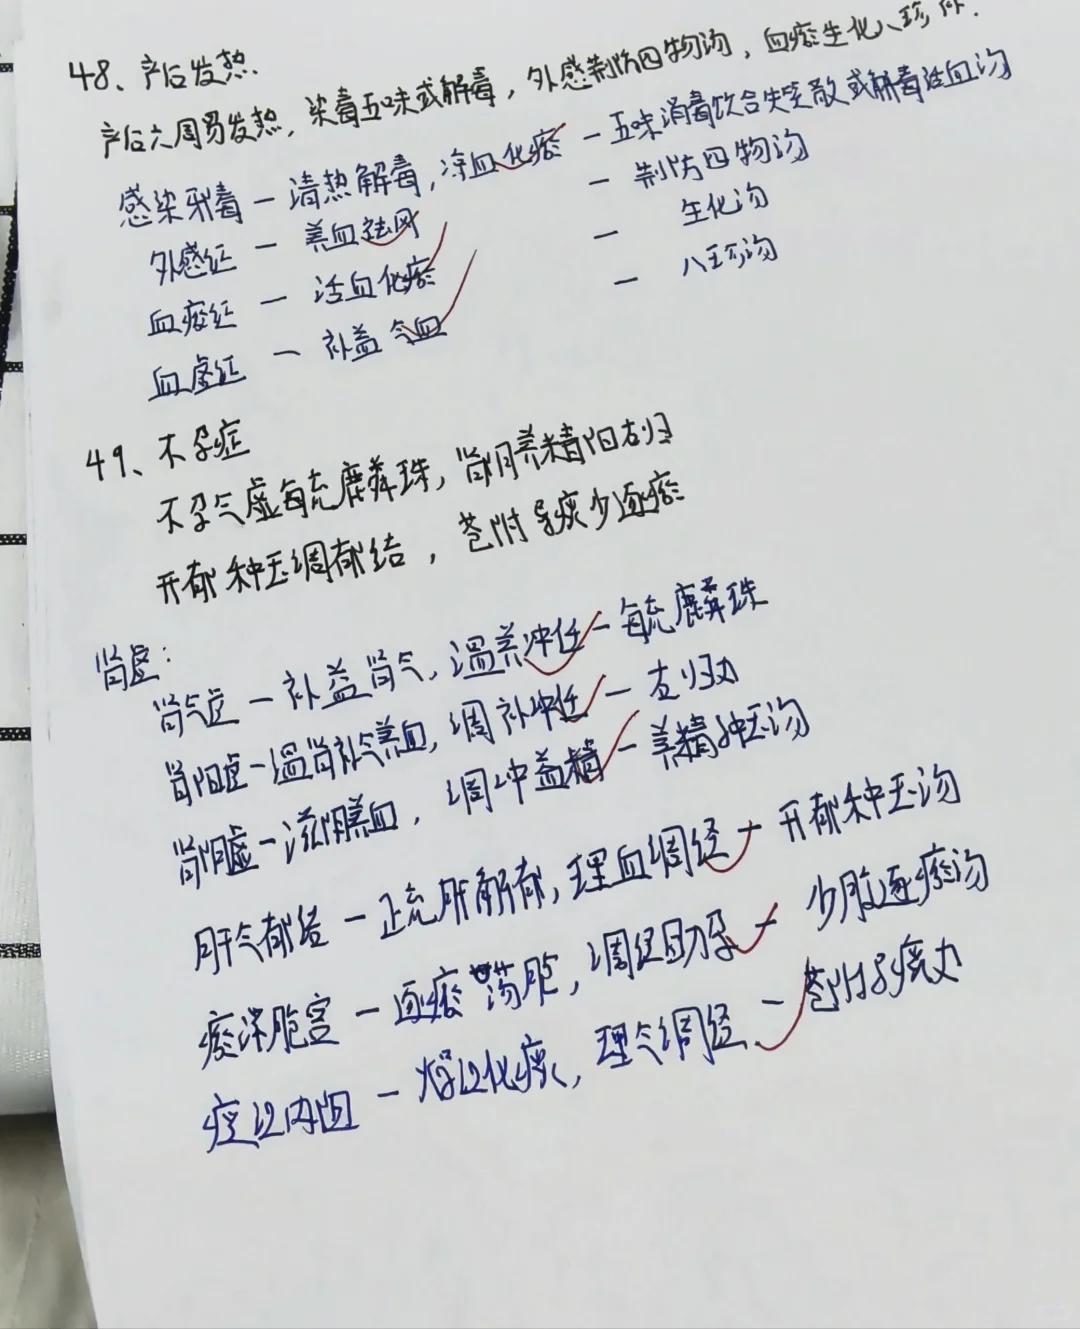 48、产后发热
产后六周易发热，染毒五味或解毒，外感荆防四物汤，血瘀生化八珍
感染邪毒 — 清热解毒，凉血化瘀 — 五味消毒饮合失笑散或解毒活血汤
外感证 — 养血祛风 — 荆防四物汤
血瘀证 — 活血化瘀 — 生化汤
血虚证 — 补益气血 — 八珍汤
49、不孕症
不孕气虚毓麟珠，肾阴养精阳右归
开郁种玉调郁结，苍附导痰少逐瘀
肾虚：
肾气虚 — 补益肾气，温养冲任 — 毓麟珠
肾阳虚 — 温肾补气养血，调补冲任 — 右归丸
肾阴虚 — 滋阴养血，调冲益精 — 养精种玉汤
肝气郁结 — 疏肝解郁，理血调经 — 开郁种玉汤
瘀滞胞宫 — 逐瘀荡胞，调经助孕 — 少腹逐瘀汤
痰湿内阻 — 燥湿化痰，理气调经 — 苍附导痰丸